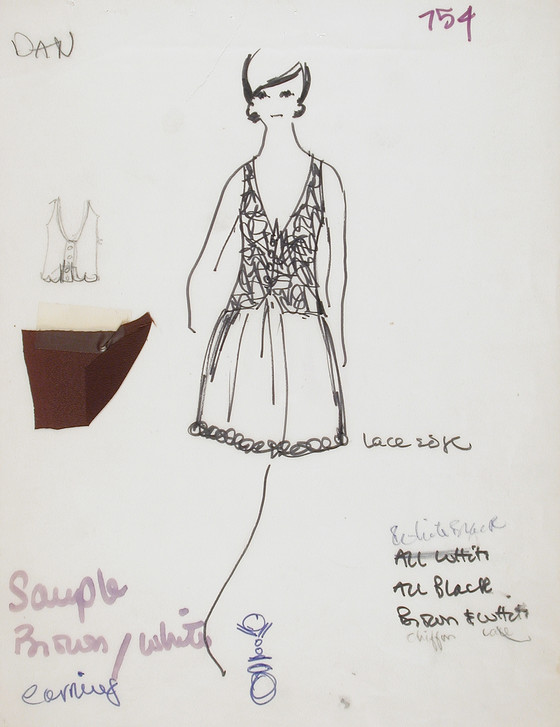 754
DAN
Lace edge
White Black
All White
All Black
Brown & White
chiffon lace
Sample
Brown / White
earring